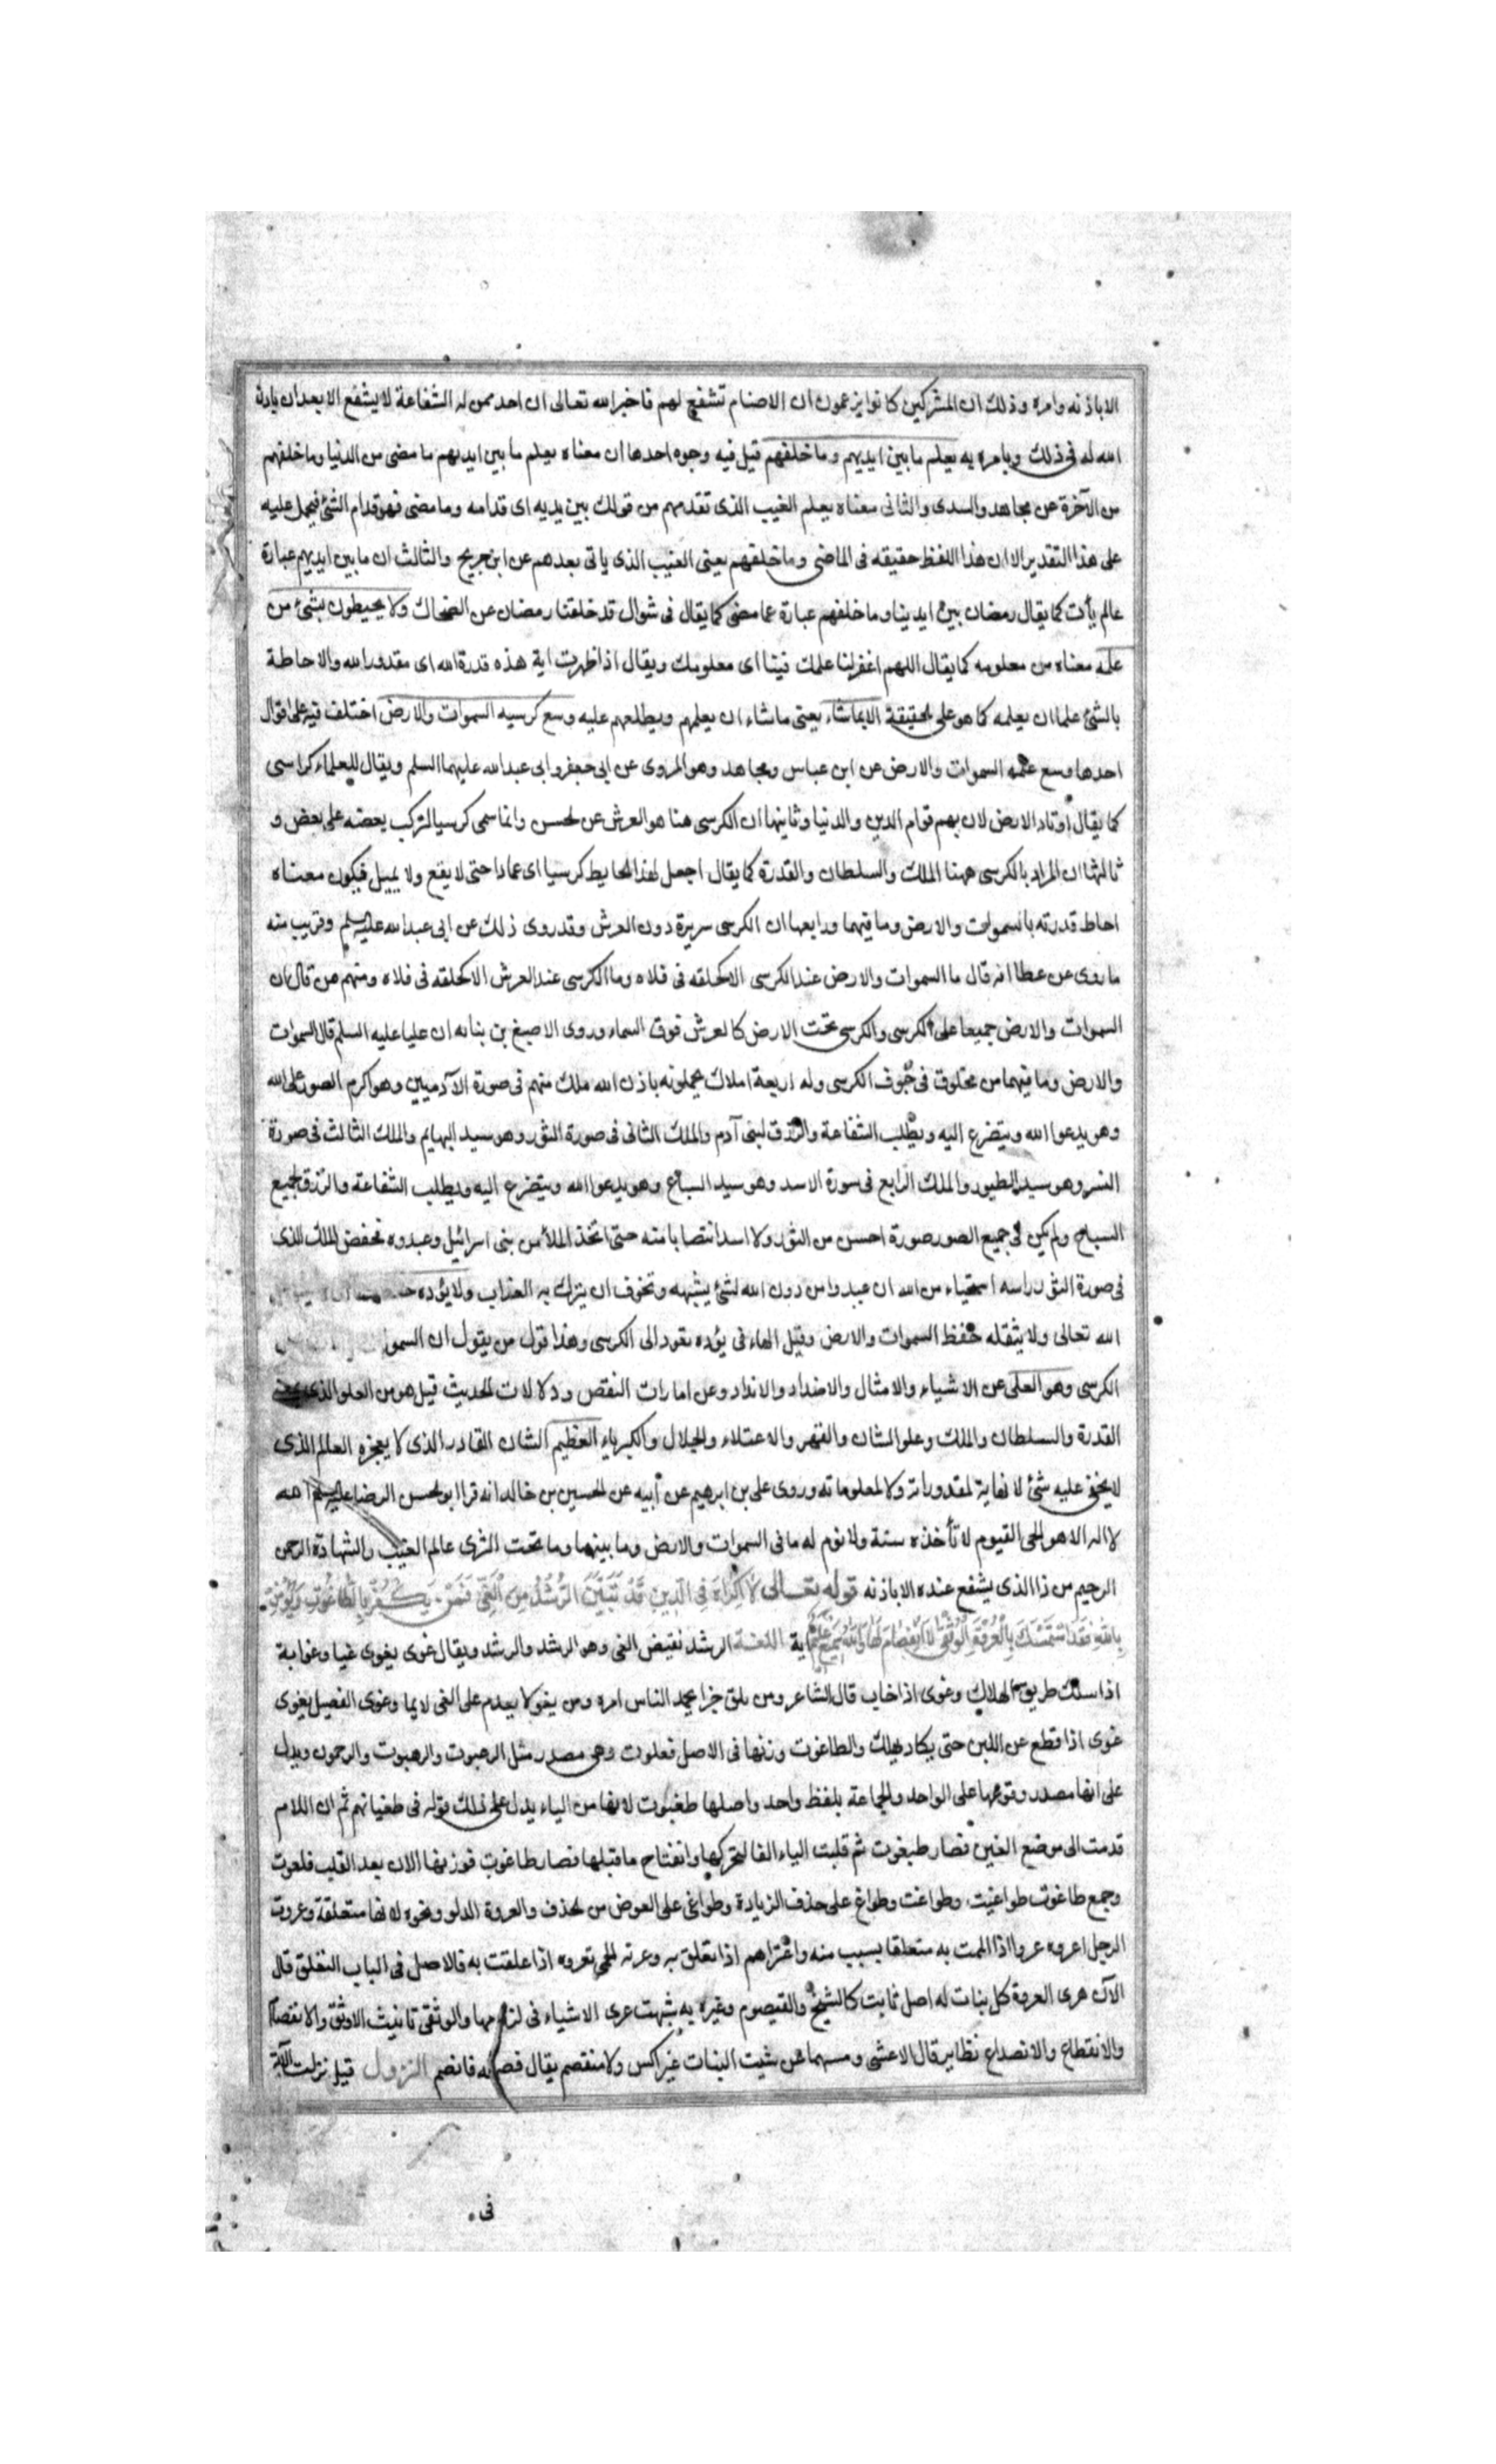 الا باذنه وامره وذلك ان المشركين كانوا يزعمون ان الاصنام تشفع لهم فاخبر الله تعالى ان احد ممن له الشفاعة لا يشفع الا بعد ان ياذن
الله له فى ذلك ويامره به يعلم ما بين ايديهم وما خلفهم قيل فيه وجوه احدها ان معناه يعلم ما بين ايديهم ما مضى من الدنيا وما خلفهم
من الآخرة عن مجاهد والسدى والثانى معناه يعلم الغيب الذى تقدمهم من قولك بين يديه اى قدامه وما مضى فهو قدام الشئ فيحمل عليه
على هذا التقدير الا ان هذا اللفظ حقيقه فى الماضى وما خلفهم يعنى الغيب الذى ياتى بعدهم عن ابن جريح والثالث ان ما بين ايديهم عبارة
عالم يأت كما يقال رمضان بين ايدينا وما خلفهم عبارة عما مضى كما يقال فى شوال قد خلفنا رمضان عن الضحاك ولا يحيطون بشئ من
علمه معناه من معلومه كما يقال اللهم اغفر لنا علمك فينا اى معلومك ويقال اذا ظهرت اية هذه قدرة الله اى مقدور الله والاحاطة
بالشئ علما ان يعلمه كما هو على الحقيقة الا بما شاء يعنى ما شاء ان يعلمهم ويطلعهم عليه وسع كرسيه السموات والارض اختلف فيه على اقوال
احدها وسع علمه السموات والارض عن ابن عباس ومجاهد وهو المروى عن ابى جعفر وابى عبد الله عليهما السلم ويقال للعلماء كراسى
كما يقال اوتاد الارض لان بهم قوام الدين والدنيا وثانيها ان الكرسى هنا هو العرش عن الحسن وانما سمى كرسيا لتركب بعضه على بعض و
ثالثها ان المراد بالكرسى ههنا الملك والسلطان والقدرة كما يقال اجعل لهذا الحايط كرسيا اى عمادا حتى لا يقع ولا يميل فيكون معناه
احاط قدرته بالسموات والارض وما فيهما ورابعها ان الكرسى سريرة دون العرش وقد روى ذلك عن ابى عبد الله عليه السلم وقريب منه
ما روى عن عطا انه قال ما السموات والارض عند الكرسى الا كحلقه فى فلاه وما الكرسى عند العرش الا كحلقه فى فلاه ومنهم من قال ان
السموات والارض جميعا على الكرسى والكرسى تحت الارض كالعرش فوق السماء وروى الاصبغ بن بناته ان عليا عليه السلم قال السموات
والارض وما فيهما من مخلوق فى جوف الكرسى وله اربعة املاك يحملونه باذن الله ملك منهم فى صورة الآدميين وهو اكرم الصور على الله
وهو يدعوا الله ويتضرع اليه ويطلب الشفاعة والرزق لبنى آدم والملك الثانى فى صورة الثور وهو سيد البهايم والملك الثالث فى صورة
النسر وهو سيد الطيور والملك الرابع فى سورة الاسد وهو سيد السباع وهو يدعوا الله ويتضرع اليه ويطلب الشفاعه والرزق لجميع
السباع ولم يكن فى جميع الصور صورة احسن من الثور ولا اسد انتصابا منه حتى اتخذ الملأ من بنى اسرائيل وعبدوه فخفض الملك الذى
فى صورة الثور راسه استحياء من الله ان عبدوا من دون الله لشئ يشبهه وتخوف ان ينزل به العذاب ولا يؤده
الله تعالى ولا يثقله حفظ السموات والارض وقيل الهاء فى يؤده تعود الى الكرسى وهذا قول من يقول ان السمو
الكرسى وهو العلى عن الاشياء والامثال والاضداد والانداد وعن امارات النقص ودلالات الحديث قيل هو من العلو الذى
القدرة والسلطان والملك وعلو الشان والقهر والاعتلاء والجلال والكبرياء العظيم الشان القادر الذى لا يعجزه العالم الذى
لا يخفى عليه شئ لا نهاية لمقدوراته ولا لمعلوماته وروى على بن ابرهيم عن أبيه عن الحسين بن خالد انه قرا ابو الحسن الرضا عليه السلم الله
لا اله الا هو الحى القيوم لا تأخذه سنة ولا نوم له ما فى السموات والارض وما بينهما وما تحت الثرى عالم الغيب والشهادة الرحمن
الرحيم من ذا الذى يشفع عنده الا باذنه قوله تعالى لَا اِكْرَاهَ فِى الدِّينِ قَدْ تَبَيَّنَ الرُّشْدُ مِنَ الْغَىِّ فَمَنْ يَكْفُرْ بِالطَّاغُوتِ وَيُؤْمِنْ
بِاللهِ فَقَدِ اسْتَمْسَكَ بِالْعُرْوَةِ الْوُثْقَى لَا انْفِصَامَ لَهَا وَاللهُ سَمِيعٌ عَلِيمٌ اية اللغة الرشد نقيض الغى وهو الرشد والرشد ويقال غوى يغوى غيا وغوابة
اذا سلك طريق الهلاك وغوى اذا خاب قال الشاعر ومن يلق خيرا يحمد الناس امره ومن يغو لا يعدم على الغى لايما وغوى الفصيل يغوى
غوى اذا قطع عن اللبن حتى يكاد يهلك والطاغوت وزنها فى الاصل فعلوت وهى مصدر مثل الرعبوت والرهبوت والرحموت ويدل
على انها مصدر وقوعها على الواحد والجماعة بلفظ واحد واصلها طغيوت لانها من الياء يدل على ذلك قوله فى طغيانهم ثم ان اللام
قدمت الى موضع الغين فصار طيغوت ثم قلبت الياء الفا لتحركها وانفتاح ما قبلها فصار طاغوت فوزنها الان بعد القلب فلعوت
وجمع طاغوت طواغيت وطواغت وطواغ على حذف الزيادة وطواغى على العوض من الحذف والعروة الدلو ونحوه لانها متعلقة وعروت
الرجل اعروه عروا اذا الممت به متعلقا بسبب منه واعتراهم اذا تعلق به وعرته الحمى تعروه اذا علقت به فالاصل فى الباب التعلق قال
الازهرى العروة كل بنات له اصل ثابت كالشيخ والقيصوم وغيره به شبهت عرى الاشياء فى لزومها والوثقى تانيث الاوثق والانفصام
والانقطاع والانصداع نظاير قال الاعشى ومسهما عن شيت البنات غير اكس ولا منفصم يقال فصمته فانفصم النزول قيل نزلت الآية
فى